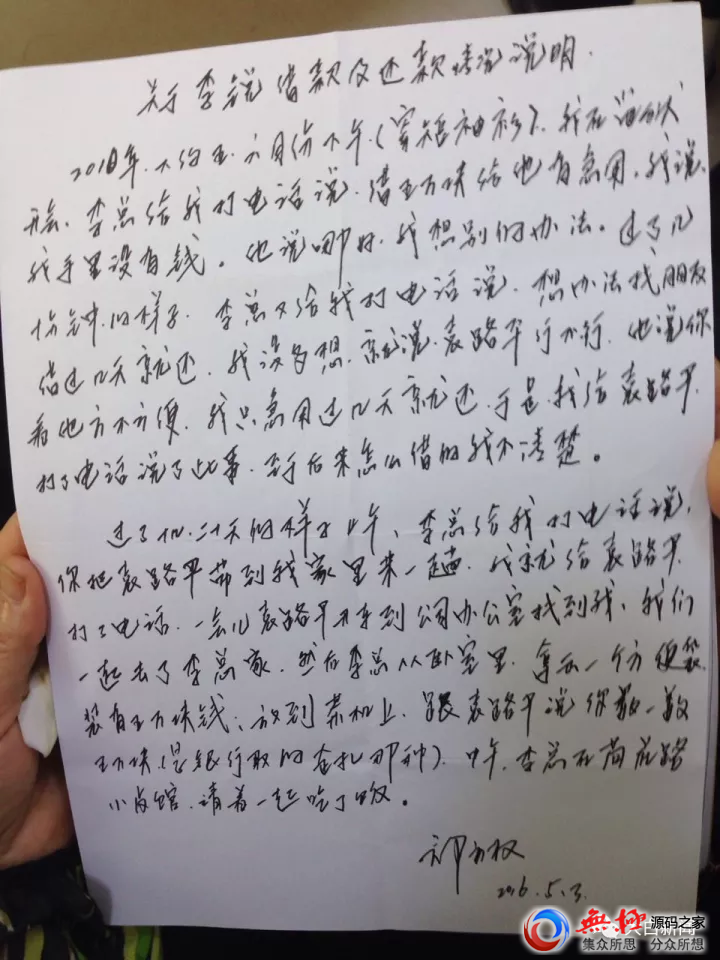 关于李锐借款及还款情况说明.
2010年.大约五.六月份下午(穿短袖衫).我在
开会.李总给我打电话说.借五万块给他有急用.我说.
我手里没有钱。他说哪好.我想别的办法。过了几
十分钟的样子.李总又给我打电话说.想办法找朋友
借过几天就还.我没多想.就说.袁路平行不行.他说你
看他方不方便.我只急用过几天就还.于是.我给袁路平.
打了电话说了此事.至于后来怎么借的我不清楚。
过了十几.二十天的样子上午、李总给我打电话说,
你把袁路平带到我家里来一趟.我就给袁路平.
打了电话.一会儿袁路平开车到公司办公室找到我、我们
一起去了李总家.然后李总从卧室里.拿出一个方便袋
装有五万块钱、放到茶机上.跟袁路平说你数一数
五万块(是银行取的 扎那种).中午.李总在 路
小 馆.请着一起吃了饭。
权
2016.5.3.
無極 源码之家
集众所思 分众所想